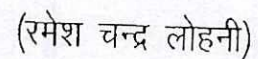 (रमेश चन्द्र लोहनी)